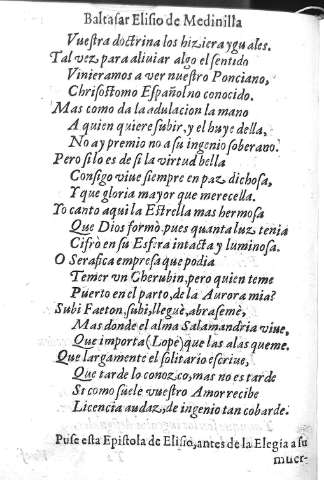 Baltasar Elisio de Medinilla
Vuestra doctrina los hiziera yguales.
Tal vez, para aliuiar algo el sentido
Vinieramos a ver nuestro Ponciano,
Chrisostomo Español no conocido.
Mas como da la adulacion la mano
A quien quiere subir, y el huye della,
No ay premio no a su ingenio soberano.
Pero si lo es de si la virtud bella
Consigo viue siempre en paz dichosa,
Y que gloria mayor que merecella.
Yo canto aqui la Estrella mas hermosa
Que Dios formò, pues quanta luz tenia
Cifrò en su Esfera intacta y luminosa.
O Serafica empresa que podia
Temer vn Cherubin, pero quien teme
Puerto en el parto, de la Aurora mia?
Subi Faeton, subi, lleguè, abrasemè,
Mas donde el alma Salamandria viue,
Que importa (Lope) que las alas queme.
Que largamente el solitario escriue,
Que tarde lo conozco, mas no es tarde
Si como suele vuestro Amor recibe
Licencia audaz, de ingenio tan cobarde.
Puse esta Epistola de Elisio, antes de la Elegia a su
muer-